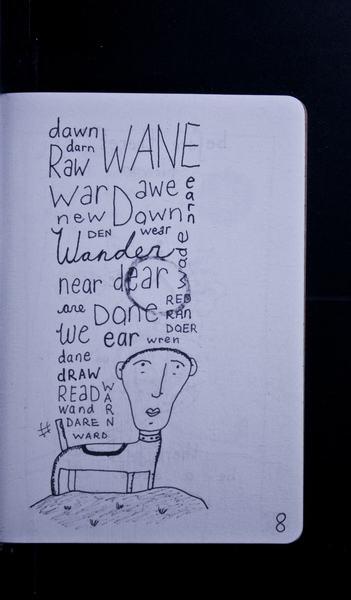 dawn
darn WANE
Raw
war Dawe earn
new Dawn
DEN wear
Wander wade
near dear
RED
are Done RAN
DOER
we ear wren
dane
dRAW
READ WARN
wand
# DARE
WARD
8